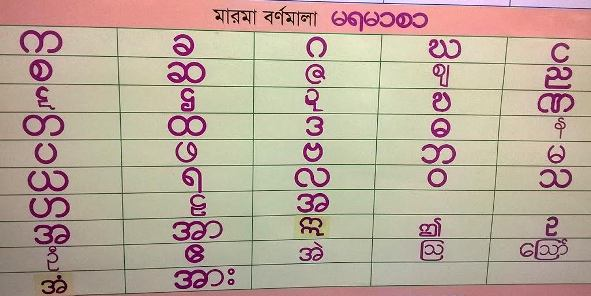 মারমা বর্ণমালা မရမာစာ
က ခ ဂ ဃ င
စ ဆ ဇ ဈ ည
ဋ ဌ ဍ ဎ ဏ
တ ထ ဒ ဓ န
ပ ဖ ဗ ဘ မ
ယ ရ လ ဝ သ
ဟ ဠ အ
အ အာ ဣ ဤ ဥ
ဧ အဲ ဩ ဪ
အံ အား